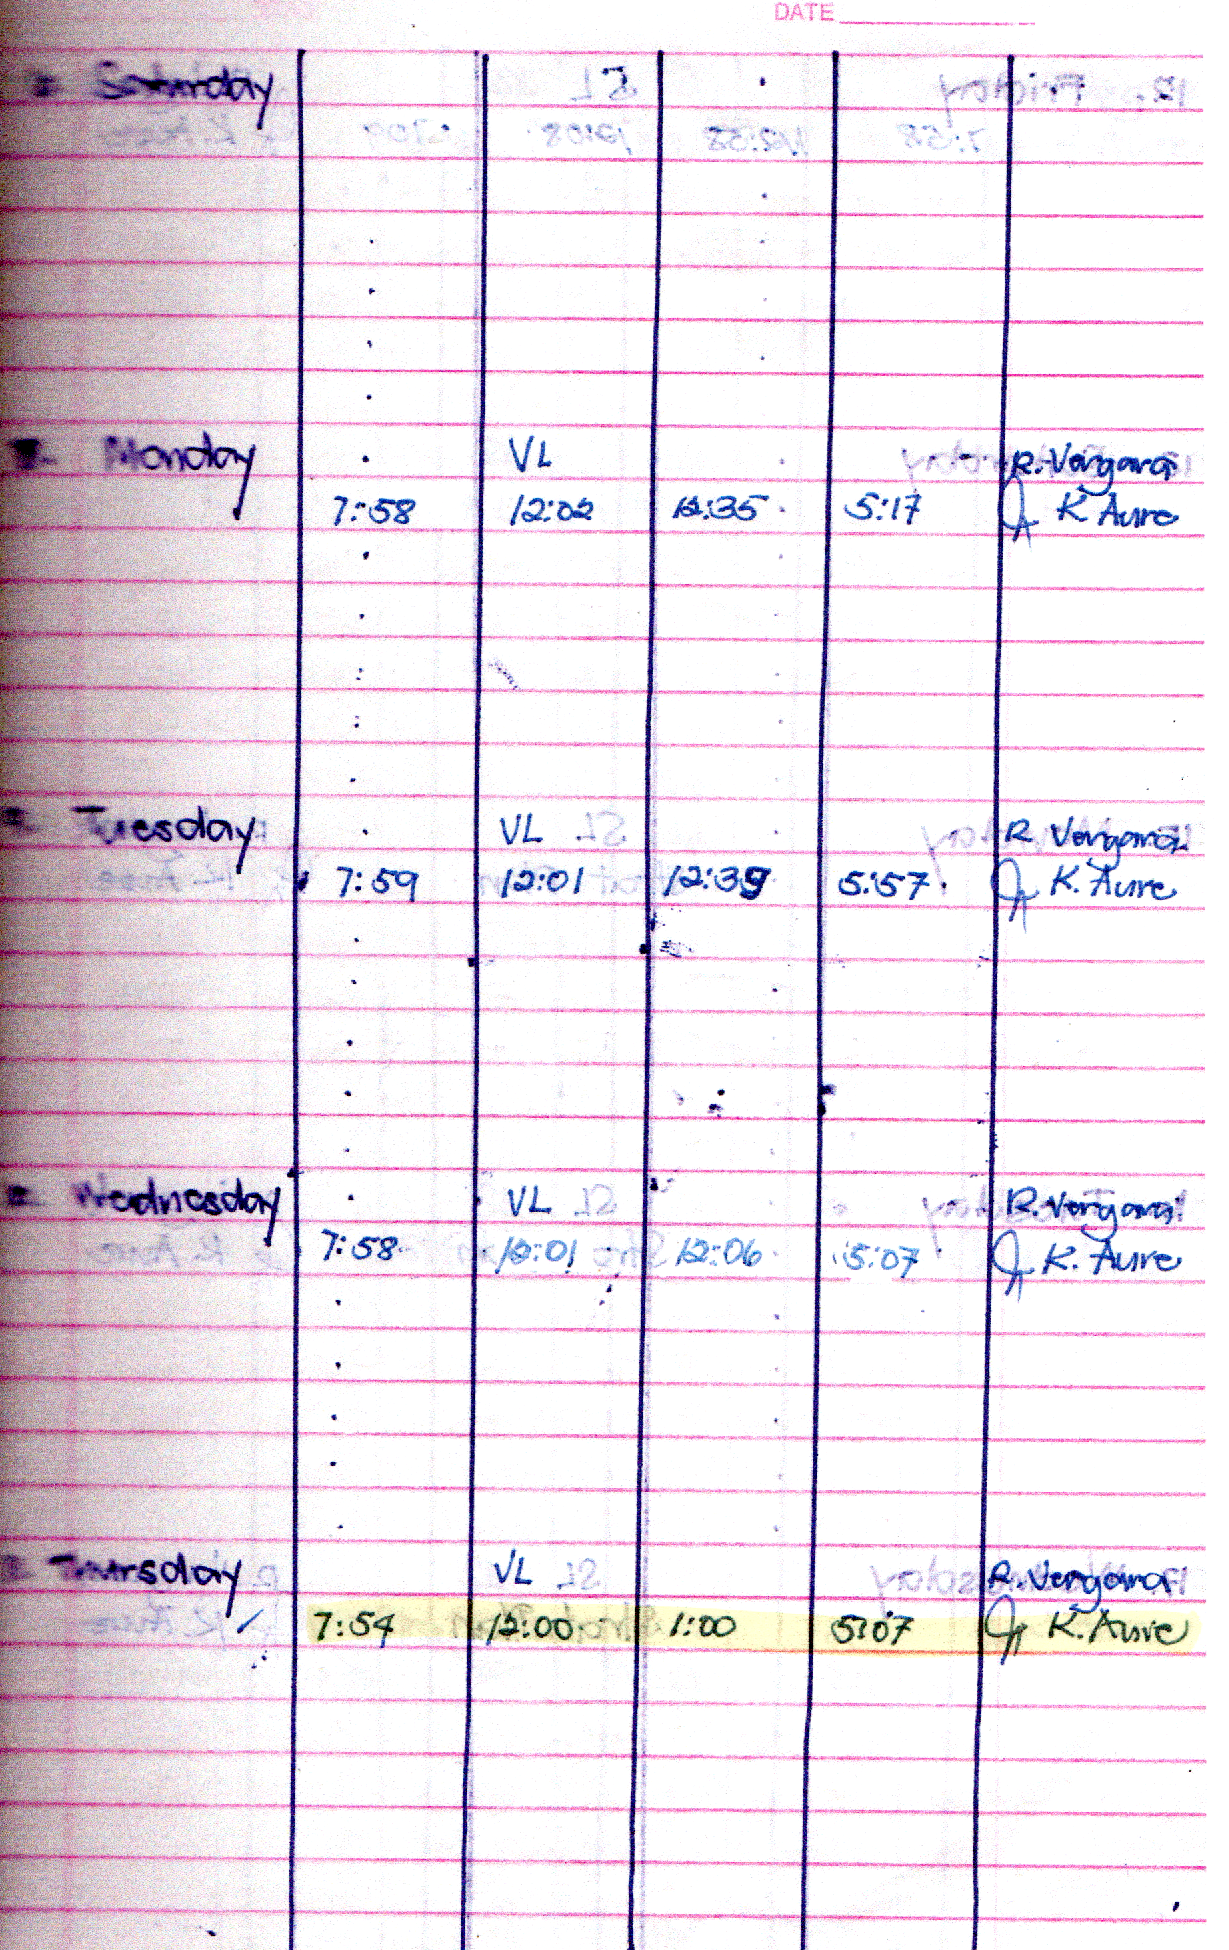 DATE
Saturday
Monday VL R. Vergara
7:58 12:02 12:35 5:17 K Aure
Tuesday VL R. Vergara
7:59 12:01 12:39 5:57 K. Aure
Wednesday VL R. Vergara
7:58 12:01 12:06 5:07 K. Aure
Thursday VL R. Vergara
7:54 12:00 1:00 5:07 K. Aure